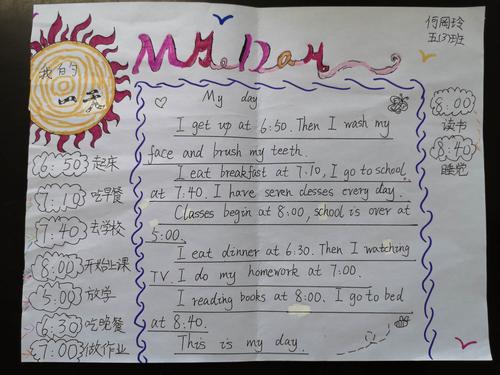 My Day
何冈玲
五(3)班
我的
一天
My day
I get up at 6:50. Then I wash my
face and brush my teeth.
I eat breakfast at 7:10, I go to school
at 7:40. I have seven classes every day.
Classes begin at 8:00, school is over at
5:00.
I eat dinner at 6:30. Then I watching
TV. I do my homework at 7:00.
I reading books at 8:00. I go to bed
at 8:40.
This is my day.
6:50 起床
7:10 吃早餐
7:40 去学校
8:00 开始上课
5:00 放学
6:30 吃晚餐
7:00 做作业
8:00
读书
8:40
睡觉